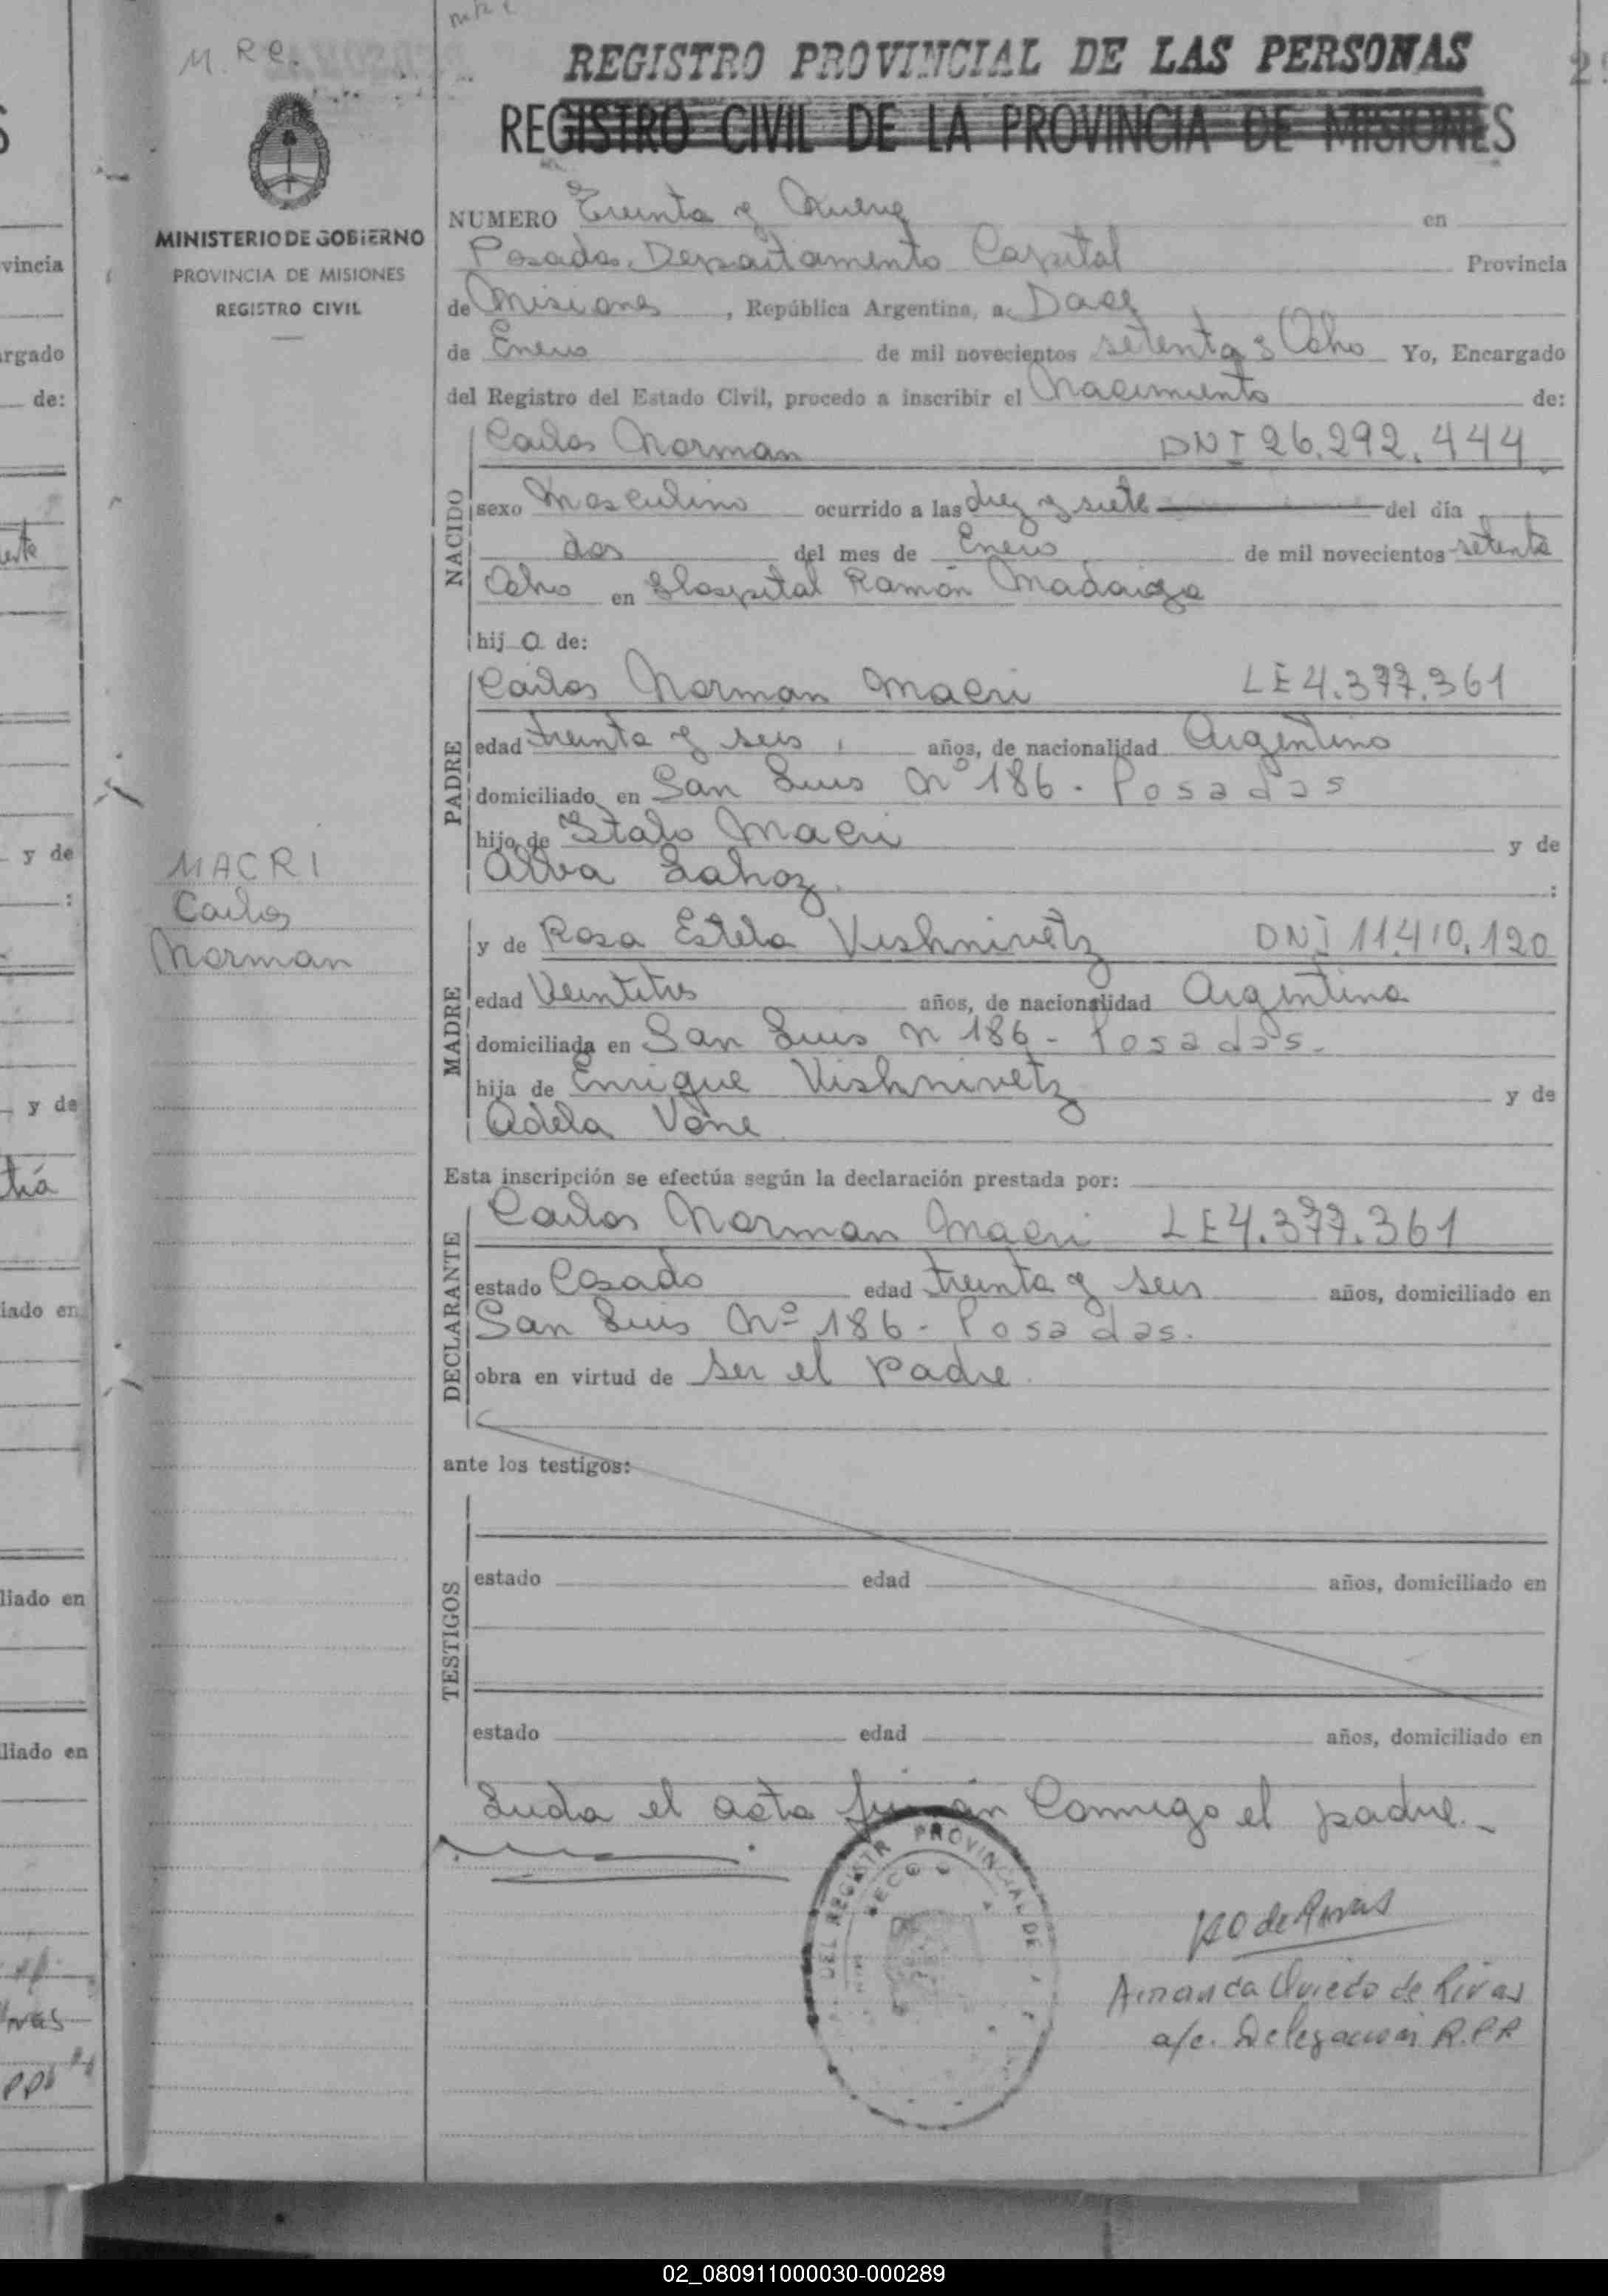 M. Re.
REGISTRO PROVINCIAL DE LAS PERSONAS
REGISTRO CIVIL DE LA PROVINCIA DE MISIONES
MINISTERIO DE GOBIERNO
PROVINCIA DE MISIONES
REGISTRO CIVIL
NUMERO Treinta y Nueve en
Posadas, Departamento Capital Provincia
de Misiones, República Argentina, a Doce
de Enero de mil novecientos setenta y Ocho Yo, Encargado
del Registro del Estado Civil, procedo a inscribir el Nacimiento de:
NACIDO
Carlos Norman DNI 26.292.444
sexo Masculino ocurrido a las diez y siete del día
dos del mes de Enero de mil novecientos setenta
Ocho en Hospital Ramón Madariaga
hij o de:
PADRE
Carlos Norman Macri LE 4.377.361
edad treinta y seis, años, de nacionalidad Argentino
domiciliado en San Luis Nº 186 - Posadas
hijo de Italo Macri y de
Alba Lahoz :
MACRI
Carlos
Norman
MADRE
y de Rosa Estela Vishnivetz DNI 11.410.120
edad Veintitres años, de nacionalidad Argentina
domiciliada en San Luis N 186 - Posadas.
hija de Enrique Vishnivetz y de
Adela Vane
Esta inscripción se efectúa según la declaración prestada por:
DECLARANTE
Carlos Norman Macri LE 4.377.361
estado Casado edad treinta y seis años, domiciliado en
San Luis Nº 186 - Posadas.
obra en virtud de ser el padre
ante los testigos:
TESTIGOS
estado edad años, domiciliado en
estado edad años, domiciliado en
Leida el acta firman Conmigo el padre.-
DEL REGISTR PROVINCIAL DE
Amanda Oviedo de Rivas
a/c. Delegación R.P.P.
vincia
argado
de:
y de
:
y de
iado en
liado en
liado en
02_080911000030-000289